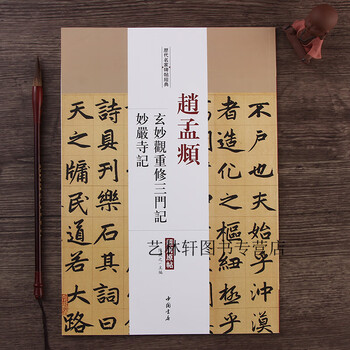 歷代名家碑帖經典
趙孟頫
玄妙觀重修三門記
妙嚴寺記
主編
中国书店
始乎沖漠
者造化之樞極
詩具刊樂石其
天之牖民道若大路
艺林轩图书专营店